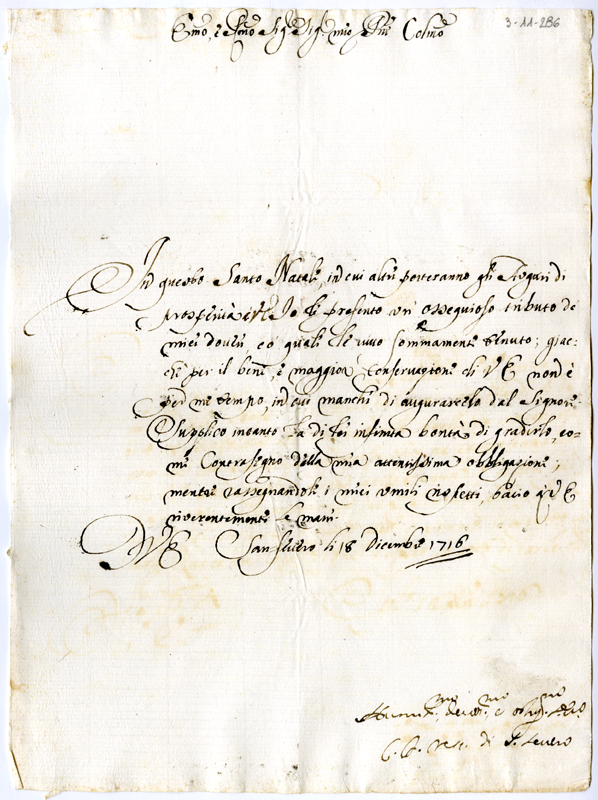 3-11-286
Emo, e Rmo Sig.e Sig.e mio Pne Colmo
In questo Santo Natale, in cui altri porteranno gli Auguri di
prosperità a V.E. Io Le presento un ossequioso tributo de
miei doveri co' quali Le vivo sommamente tenuto; giac-
chè per il bene, e maggior conservazione di V E non v'è
per me tempo, in cui manchi di augurarcelo dal Signore
Supplico intanto la di Lei infinita bontà di gradirlo, co-
me Contrasegno della mia attentissima obbligazione;
mentre rassegnandole i miei umili rispetti, bacio a V E
riverentemente le mani.
D V E San Severo li 18 Dicembre 1716
Humil.mo devot.mo e oblig.mo
di S. Severo